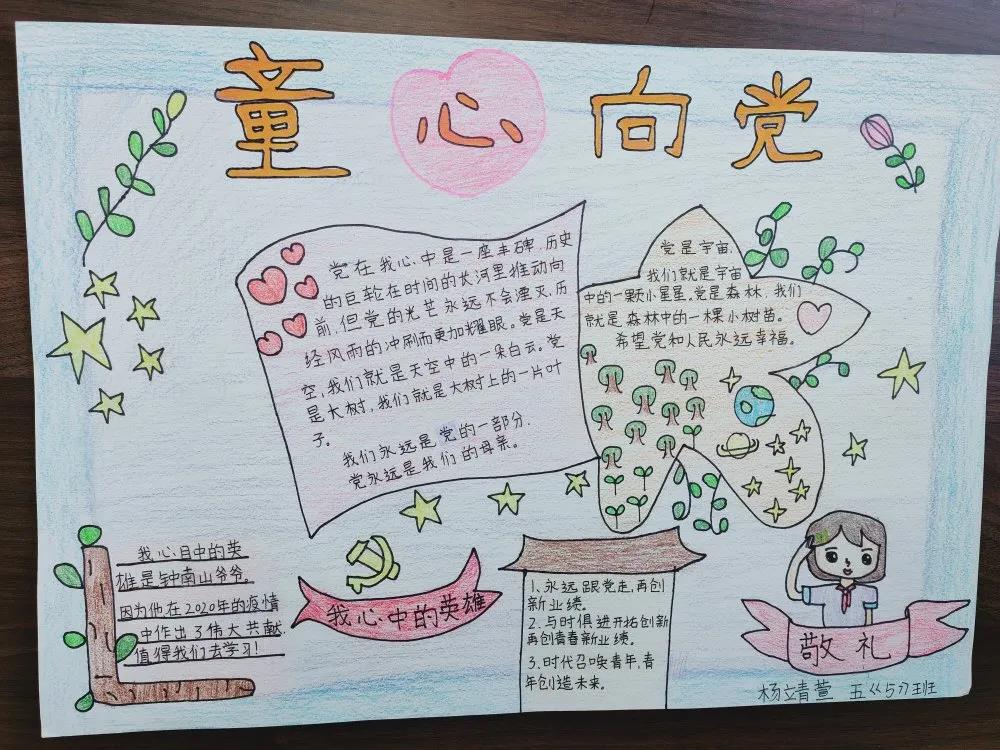 童心向党
党在我心中是一座丰碑.历史
的巨轮在时间的长河里推动向
前,但党的光芒永远不会湮灭,历
经风雨的冲刷而更加耀眼。党是天
空,我们就是天空中的一朵白云。党
是大树,我们就是大树上的一片叶
子。
我们永远是党的一部分.
党永远是我们的母亲。
党是宇宙.
我们就是宇宙
中的一颗小星星。党是森林,我们
就是森林中的一棵小树苗。
希望党和人民永远幸福。
我心目中的英
雄是钟南山爷爷。
因为他在2020年的疫情
中作出了伟大共献.
值得我们去学习!
我心中的英雄
1.永远跟党走,再创
新业绩。
2.与时俱进开拓创新
再创青春新业绩。
3.时代召唤青年,青
年创造未来。
敬礼
杨立青萱 五《57班